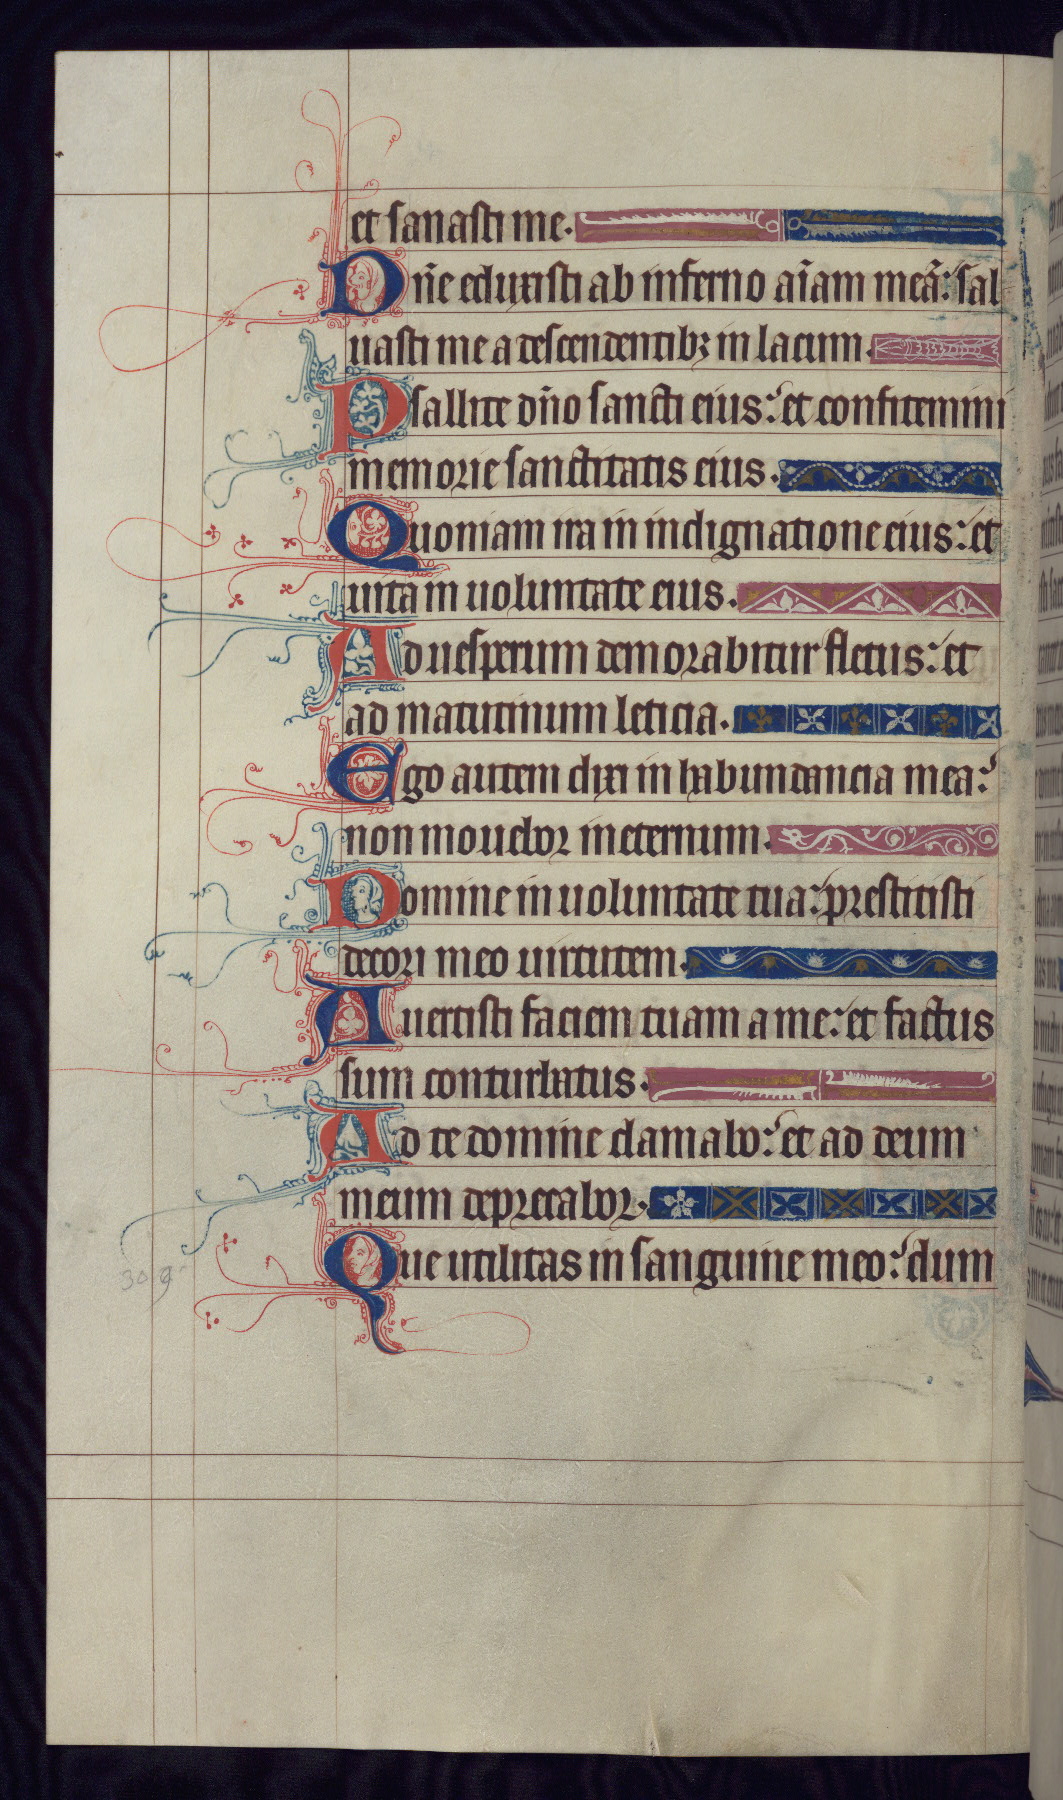 et sanasti me.
Dñe eduxisti ab inferno aĩam meã: sal
uasti me a descendentibꝫ in lacum.
Psallite dño sancti eius: et confitemini
memorie sanctitatis eius.
Quoniam ira in indignatione eius: et
uita in uoluntate eius.
Ad uesperum demorabitur fletus: et
ad matutinum leticia.
Ego autem dixi in habundancia mea:
non mouebor in eternum.
Domine in uoluntate tua: prestitisti
decori meo uirtutem.
Auertisti faciem tuam a me: et factus
sum conturbatus.
Ad te domine clamabo: et ad deum
meum deprecabor.
Que utilitas in sanguine meo: dum